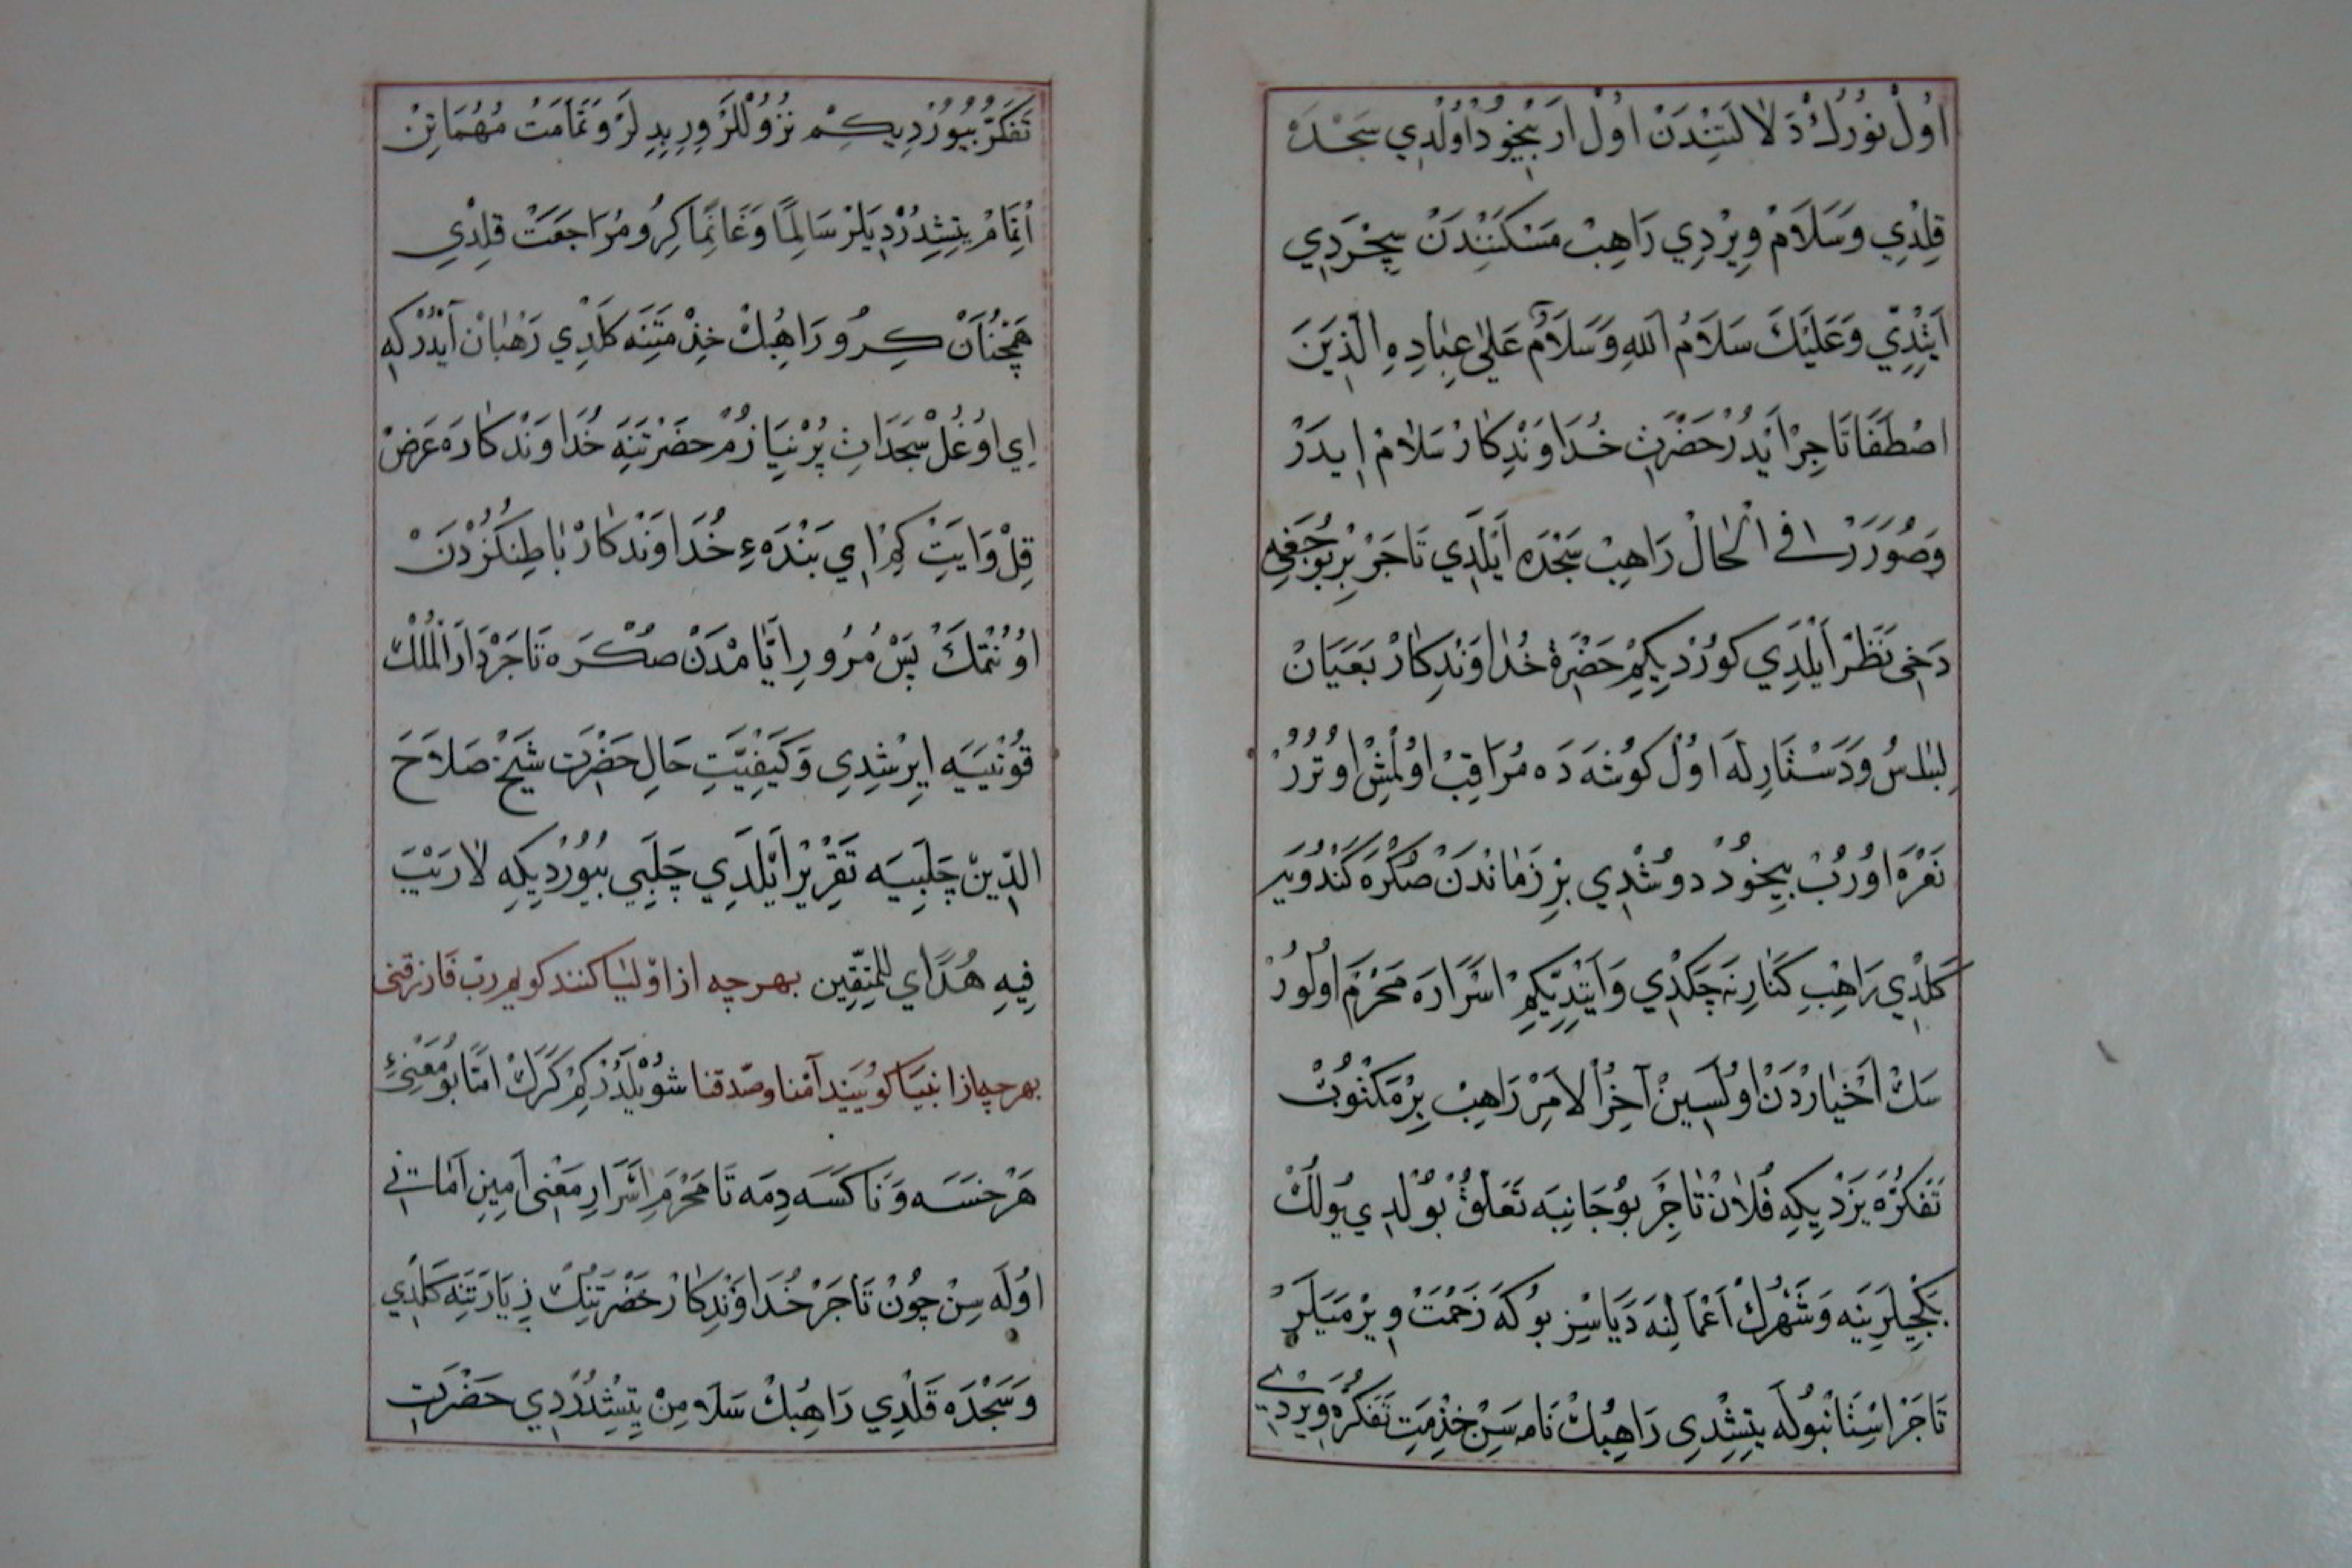 اُولْ نُورُكْ دَلَالَتِنْدَنْ اُولْ اَرْ بِيخُودْ اُولْدِي سَجْدَه
قِلْدِي وَسَلَامْ وِيرْدِي رَاهِبْ مَسْكَنِنْدَنْ سِچْرَدِي
اَيِتْدِي وَعَلَيْكَ سَلَامُ اللهِ وَسَلَامٌ عَلٰى عِبَادِهِ الَّذِينَ
اصْطَفَا تَاجِرْ اَيْدُرْ حَضْرَتِ خُدَاوَنْدِكَارْ سَلَامْ اِيدَرْ
وَصُورَرْ فِي الْحَالْ رَاهِبْ سَجْدَه اَيْلَدِي تَاجَرْ بِرْ بُوجَغِه
دَخِي نَظَرْ اَيْلَدِي كُورْدِيكِمْ حَضْرَةِ خُدَاوَنْدِكَارْ بَعَيَانْ
لِبَاسْ وَدَسْتَارِلَه اُولْ كُوشَه دَه مُرَاقِبْ اُولْمِشْ اُوتُرُرْ
نَعْرَه اُورُبْ بِيخُودْ دُوشْدِي بِرْ زَمَانْدَنْ صُكْرَه كَنْدُويَه
كَلْدِي رَاهِبِ كَنَارِنَه چَكْدِي وَاَيِتْدِيكِمْ اَسْرَارَه مَحْرَمْ اُولُورْ
سَكْ اَخْيَارْدَنْ اُولَسِينْ آخِرُ الْاَمِرْ رَاهِبْ بِرْ مَكْتُوبْ
تَذَكُرَه يَزْدِيكِه فُلَانْ تَاجِرْ بُو جَانِبَه تَعَلُّقْ بُولْدِي يُولُكْ
بَكْجِيلَرِينَه وَشَهْرُكْ اَعْمَالِنَه دَيَاسِزْ بُوكَه زَحْمَتْ وِيرْمَيَلَرْ
تَاجَرْ اِسْتَانْبُولَه يِتِشْدِي رَاهِبُكْ نَامَه سِنْ خِذْمَتِ تَفَكُّرَه وِيرْدِي
تَفَكُّرْ بُيُورْدِيكِمْ نُزُولْلَرْ وِرِيدِلَرْ وَتَمَامَتْ مُهِمَّاتِنْ
اِتْمَامْ يِتِشِدُرْدِيلَرْ سَالِمًا وَغَانِمًا كِرُو مُرَاجَعَتْ قِلْدِي
هَمْچُنَانْ كِرُو رَاهِبُكْ خِذْمَتِنَه كَلْدِي رَهْبَانْ اَيْدُرْ كِه
اِي اُوغُلْ سَجَدَاتِ پُرْ نِيَازُمْ حَضْرَتِنَه خُدَاوَنْدِكَارَه عَرْضْ
قِلْ وَايِتْ كِمْ اِي بَنْدَهءِ خُدَاوَنْدِكَارْ بَاطِنِكُزْدَنْ
اُونُتْمَكْ پَسْ مُرُورِ اَيَّامْدَنْ صُكْرَه تَاجَرْ دَارُ الْمُلْكْ
قُونْيَيَه اِيرِشْدِي وَكَيْفِيَّتِ حَالِ حَضْرَتِ شَيْخْ صَلَاحَ
الدِّينْ چَلَبِيَه تَقْرِيرْ اَيْلَدِي چَلَبِي بُيُورْدِيكِه لَا رَيْبَ
فِيهِ هُدًاي لِلْمُتَّقِين بهرچه از اوليا كنند كويم رب قد ارزقنى
بهرچه از انبيا كوييند آمنا وصدقنا شُويْلَدُرْ كِمْ كَرَكْ امَّا بُو مَعْنِيءِ
هَرْ خَسَسَه وَنَاكَسَه دِمَه تَا مَحْرَمِ اَسْرَارِ مَعْنِي اَمِينِ اَمَانَتِي
اُولَه سِنْ چُونْ تَاجَرْ خُدَاوَنْدِكَارْ حَضْرَتِنُكْ زِيَارَتِنَه كَلْدِي
وَسَجْدَه قِلْدِي رَاهِبُكْ سَلَامِنْ يِتِشْدُرْدِي حَضْرَتِ